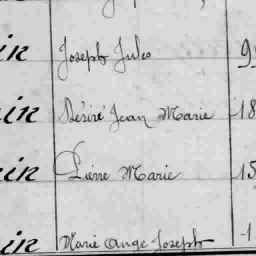 in Joseph Jules 9
in Désiré Jean Marie 18
in Pierre Marie 15
in Marie Ange Joseph 1